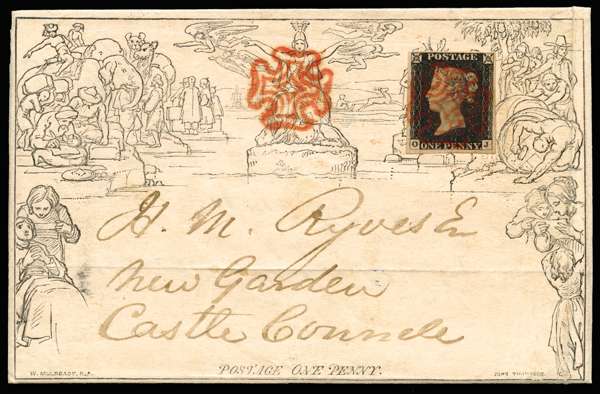 POSTAGE
O ONE PENNY J
H. M. Ryves E
New Garden
Castle Connele
POSTAGE ONE PENNY.
W. MULREADY, R.A.
JOHN THOMPSON